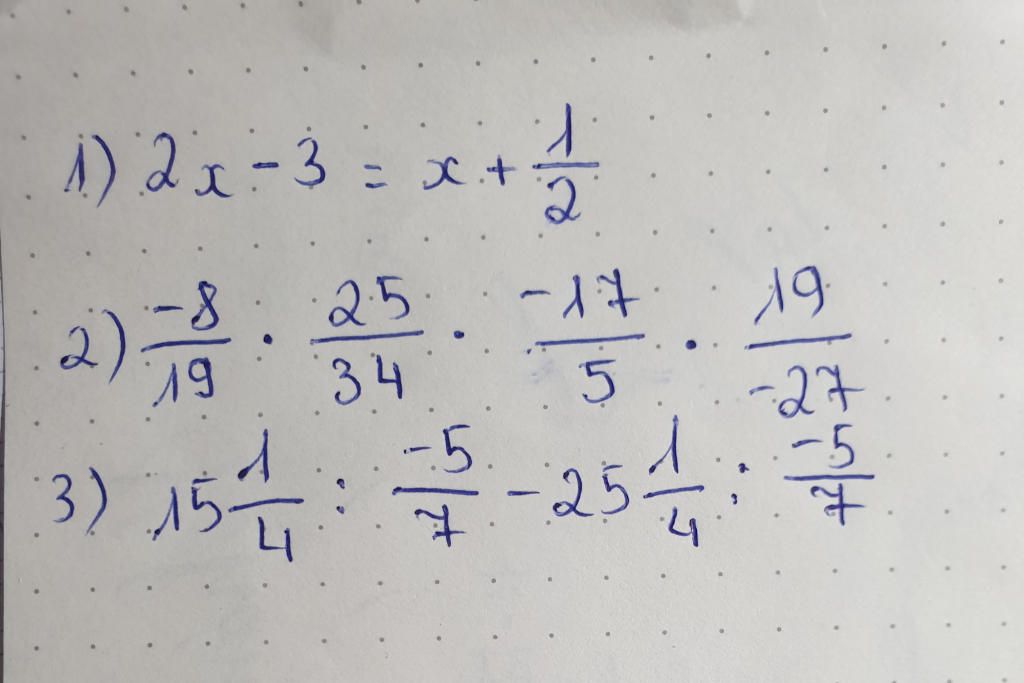 1) 2x - 3 = x + 1/2
2) -8/19 · 25/34 · -17/5 · 19/-27
3) 15 1/4 : -5/7 - 25 1/4 : -5/7